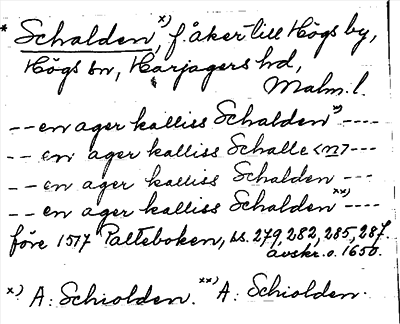 * Schalden x), f. åker till Högs by,
Högs sn, Harjagers hd,
Malm. l.
-- en ager kalliss Schalden x) ----
-- en ager kalliss Schalle<n> ---
-- en ager kalliss Schalden ---
-- en ager kalliss Schalden xx) ----
före 1517 Palteboken, ss. 279, 282, 285, 287.
avskr. o. 1650.
x) A: Schiolden. xx) A: Schiolden.